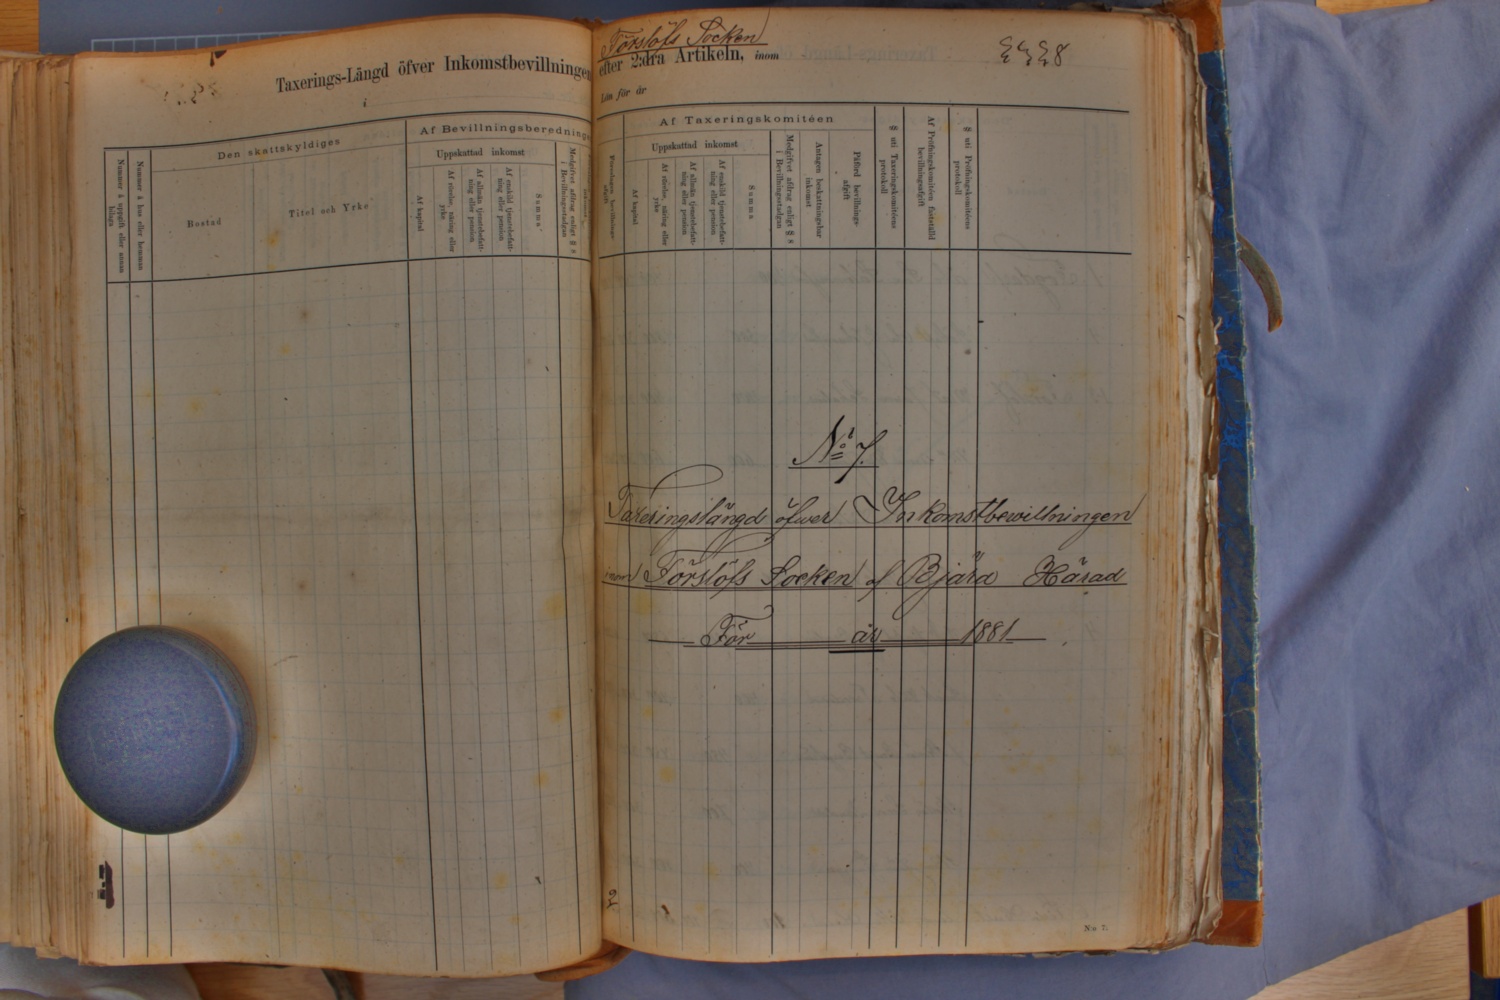 Taxerings-Längd öfver Inkomstbevillningen
i
Den skattskyldiges
Af Bevillningsberedningen
Uppskattad inkomst
Nummer å uppgift eller annan bilaga
Nummer å hus eller hemman
Bostad
Titel och Yrke
Af kapital
Af rörelse, näring eller yrke
Af allmän tjenstebefattning eller pension
Af enskild tjenstebefattning eller pension
Summa
Medgifvet afdrag enligt § 8 i Bevillningsstadgan
Förslöfs Socken
efter 2:dra Artikeln, inom
Län för år
Af Taxeringskomitéen
Uppskattad inkomst
Af kapital
Af rörelse, näring eller yrke
Af allmän tjenstebefattning eller pension
Af enskild tjenstebefattning eller pension
Summa
Medgifvet afdrag enligt § 8 i Bevillningsstadgan
Antagen beskattningsbar inkomst
Påförd bevillningsafgift
§ uti Taxeringskomitéens protokoll
Af Pröfningskomitéen fastställd bevillningsafgift
§ uti Pröfningskomitéens protokoll
No 7.
Taxeringslängd öfwer Inkomstbewillningen
inom Förslöfs Socken af Bjära Härad
För år 1881
N:o 7.